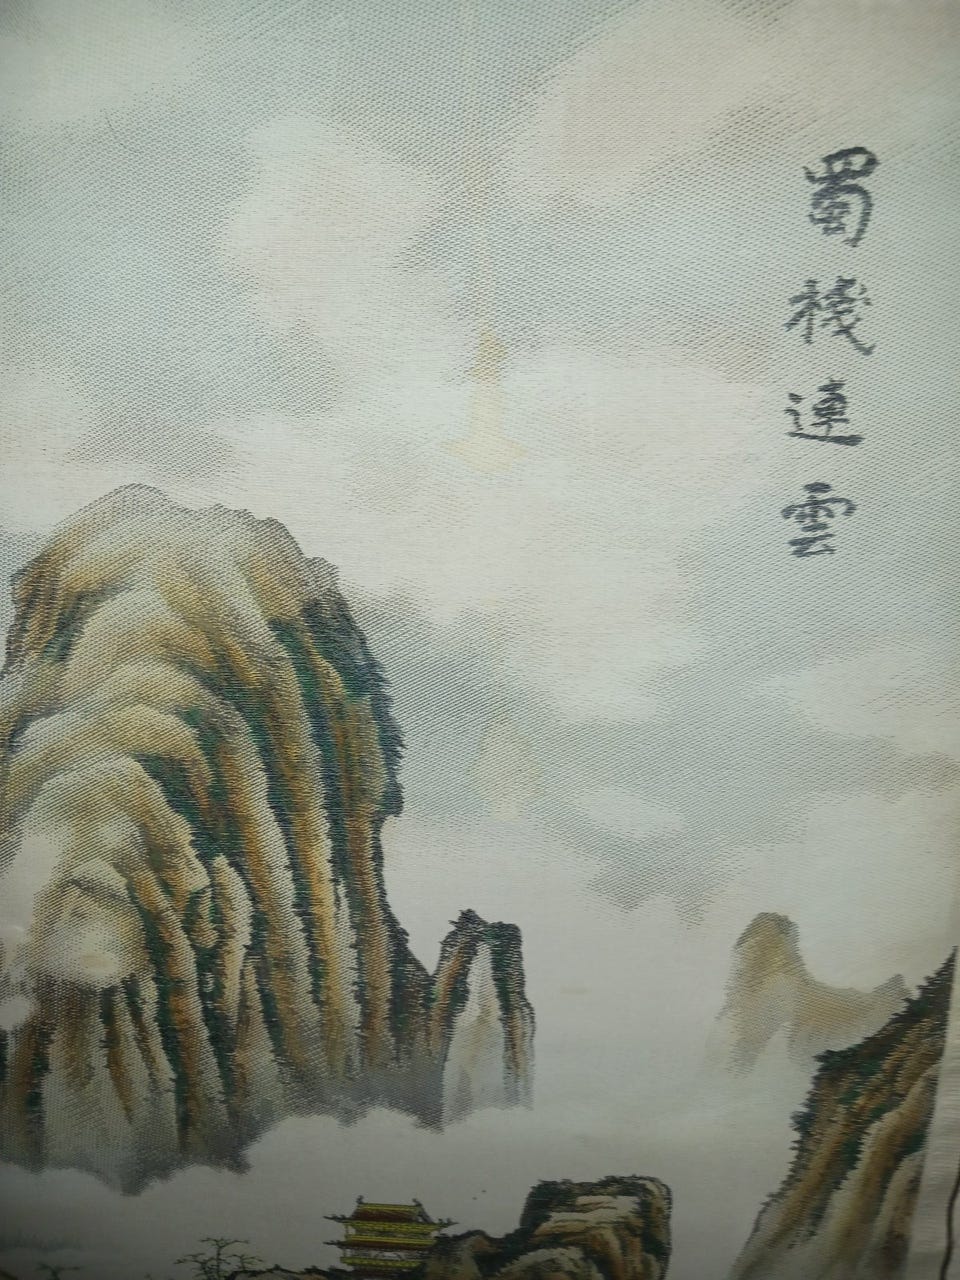 蜀棧連雲